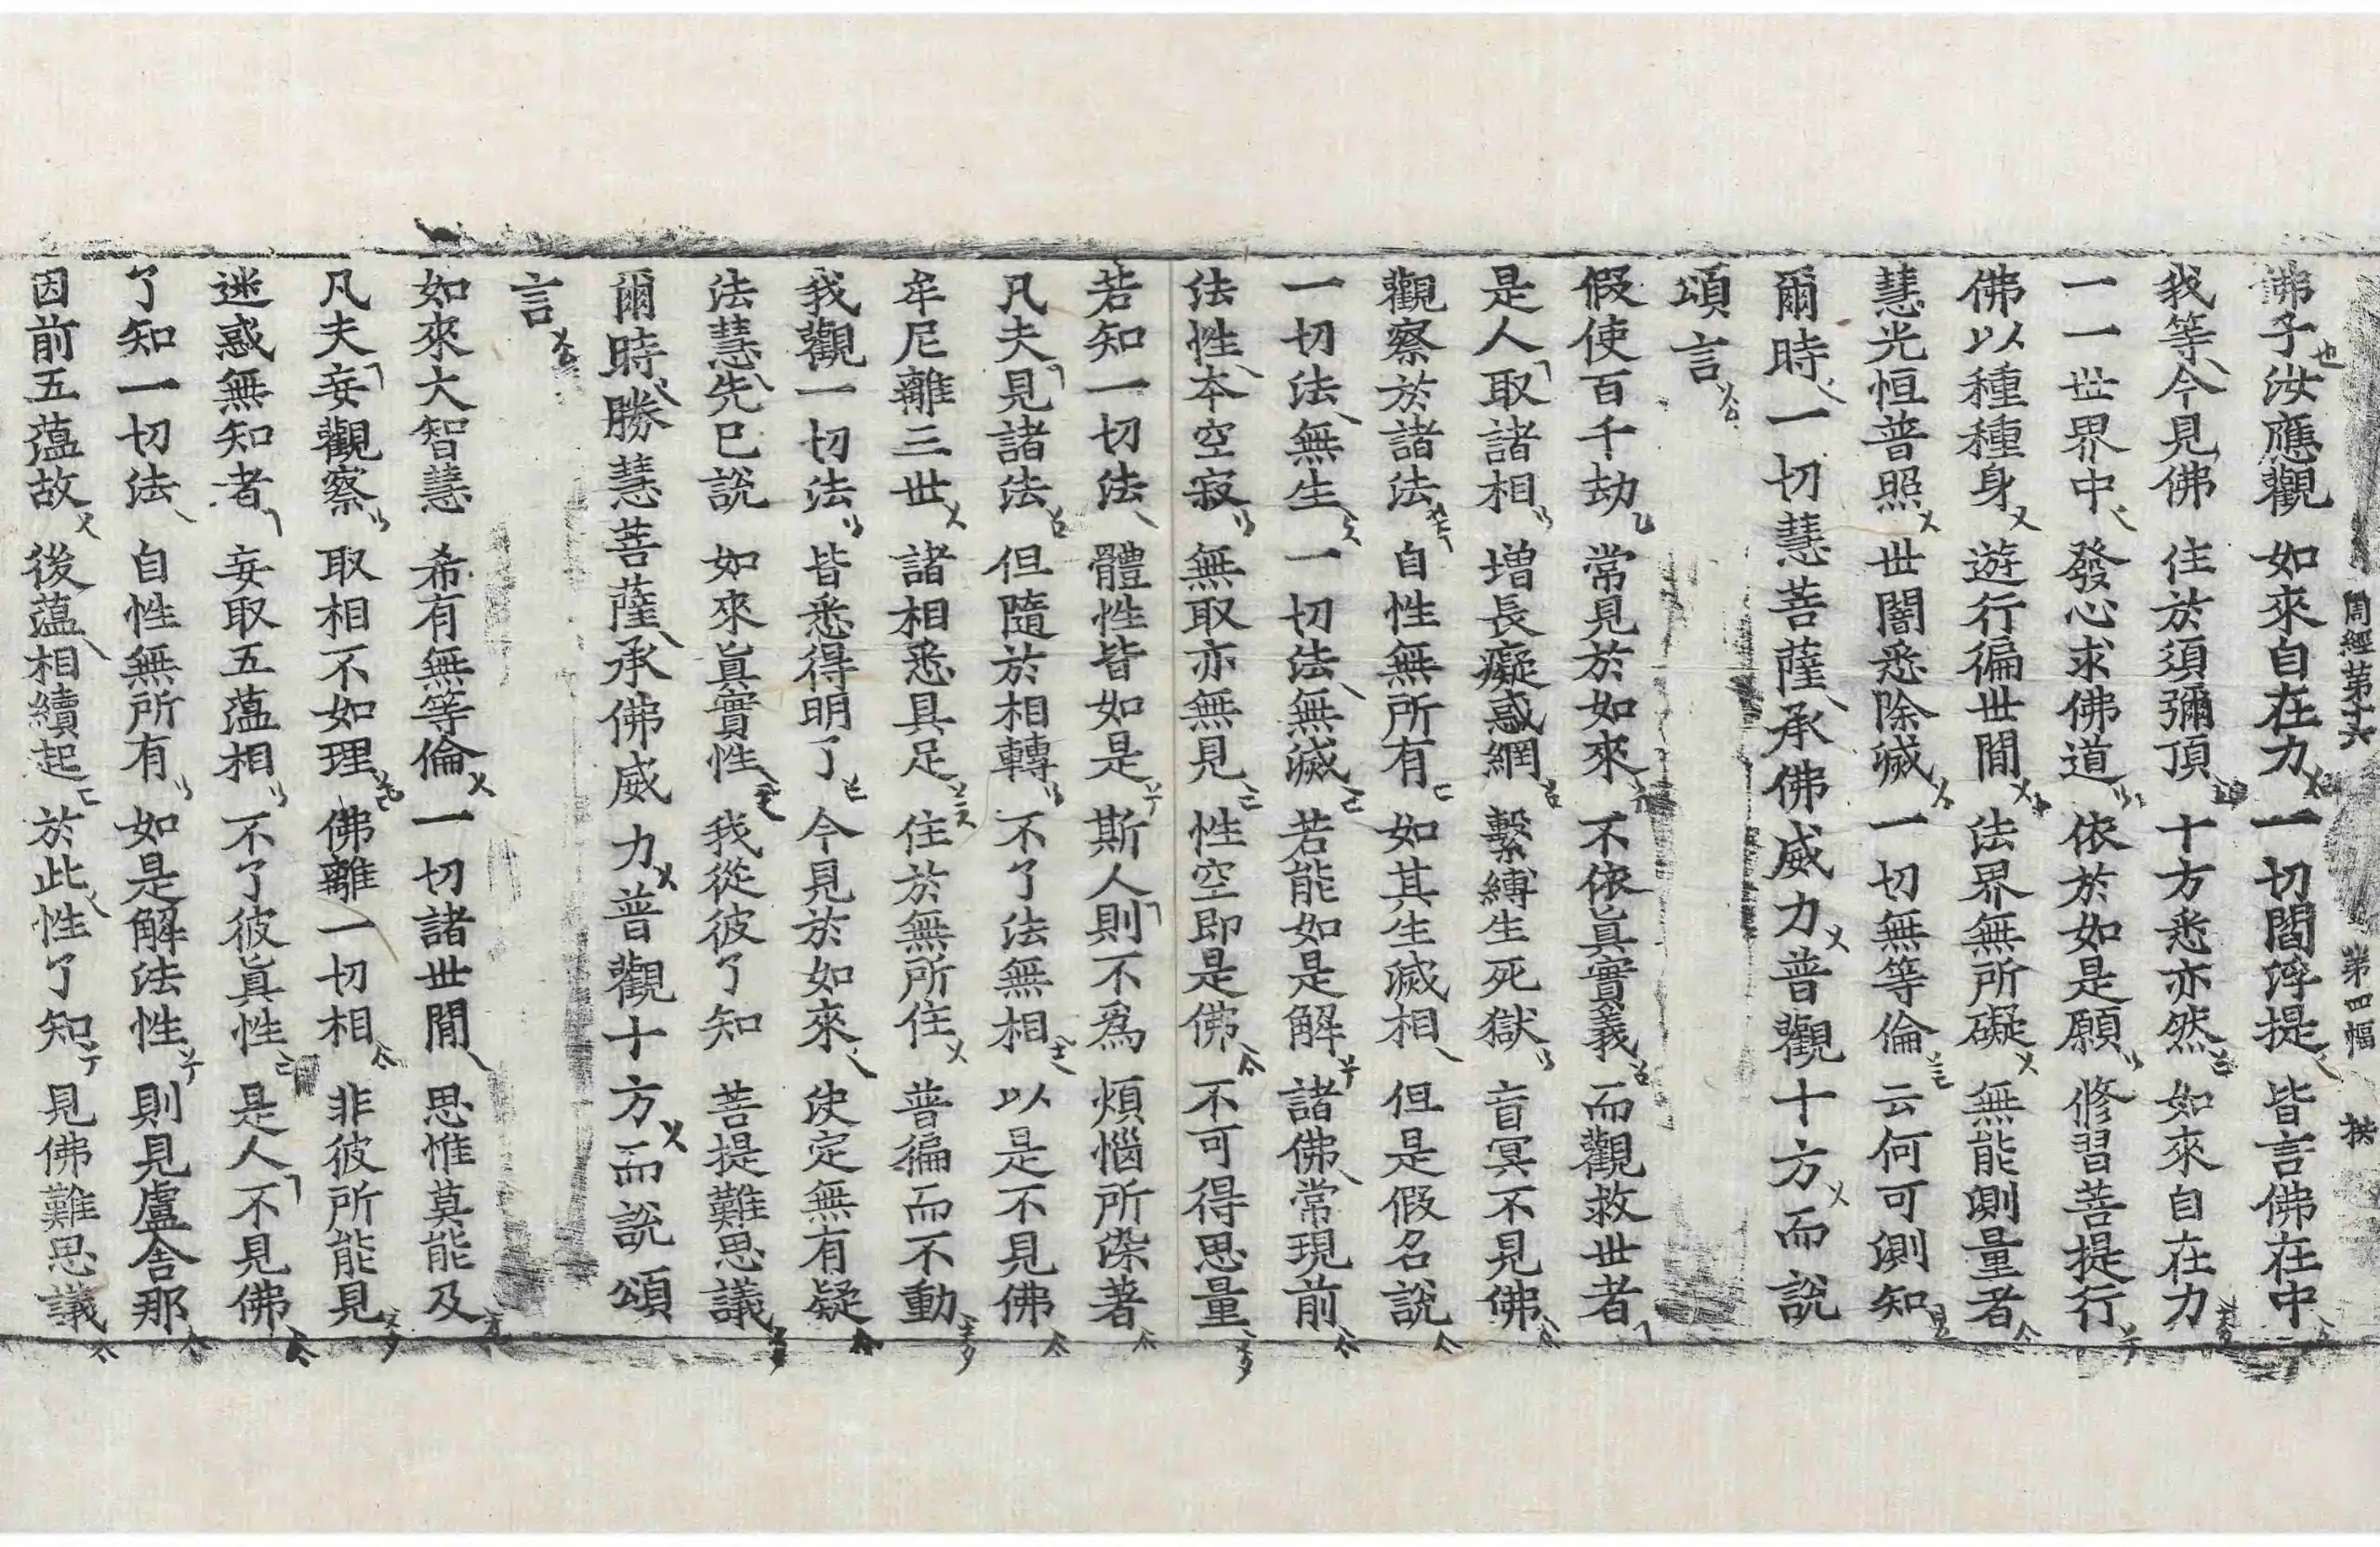 周經第十六 第四幅 拱
佛子汝應觀 如來自在力 一切閻浮提 皆言佛在中
我等今見佛 住於須彌頂 十方悉亦然 如來自在力
一一世界中 發心求佛道 依於如是願 修習菩提行
佛以種種身 遊行徧世閒 法界無所礙 無能測量者
慧光恒普照 世闇悉除滅 一切無等倫 云何可測知
爾時一切慧菩薩承佛威力普觀十方而說
頌言
假使百千劫 常見於如來 不依眞實義 而觀救世者
是人取諸相 增長癡惑網 繫縛生死獄 盲冥不見佛
觀察於諸法 自性無所有 如其生滅相 但是假名說
一切法無生 一切法無滅 若能如是解 諸佛常現前
法性本空寂 無取亦無見 性空即是佛 不可得思量
若知一切法 體性皆如是 斯人則不爲 煩惱所染著
凡夫見諸法 但隨於相轉 不了法無相 以是不見佛
牟尼離三世 諸相悉具足 住於無所住 普徧而不動
我觀一切法 皆悉得明了 今見於如來 決定無有疑
法慧先已說 如來眞實性 我從彼了知 菩提難思議
爾時勝慧菩薩承佛威力普觀十方而說頌
言
如來大智慧 希有無等倫 一切諸世閒 思惟莫能及
凡夫妄觀察 取相不如理 佛離一切相 非彼所能見
迷惑無知者 妄取五蘊相 不了彼眞性 是人不見佛
了知一切法 自性無所有 如是解法性 則見盧舍那
因前五蘊故 後蘊相續起 於此性了知 見佛難思議